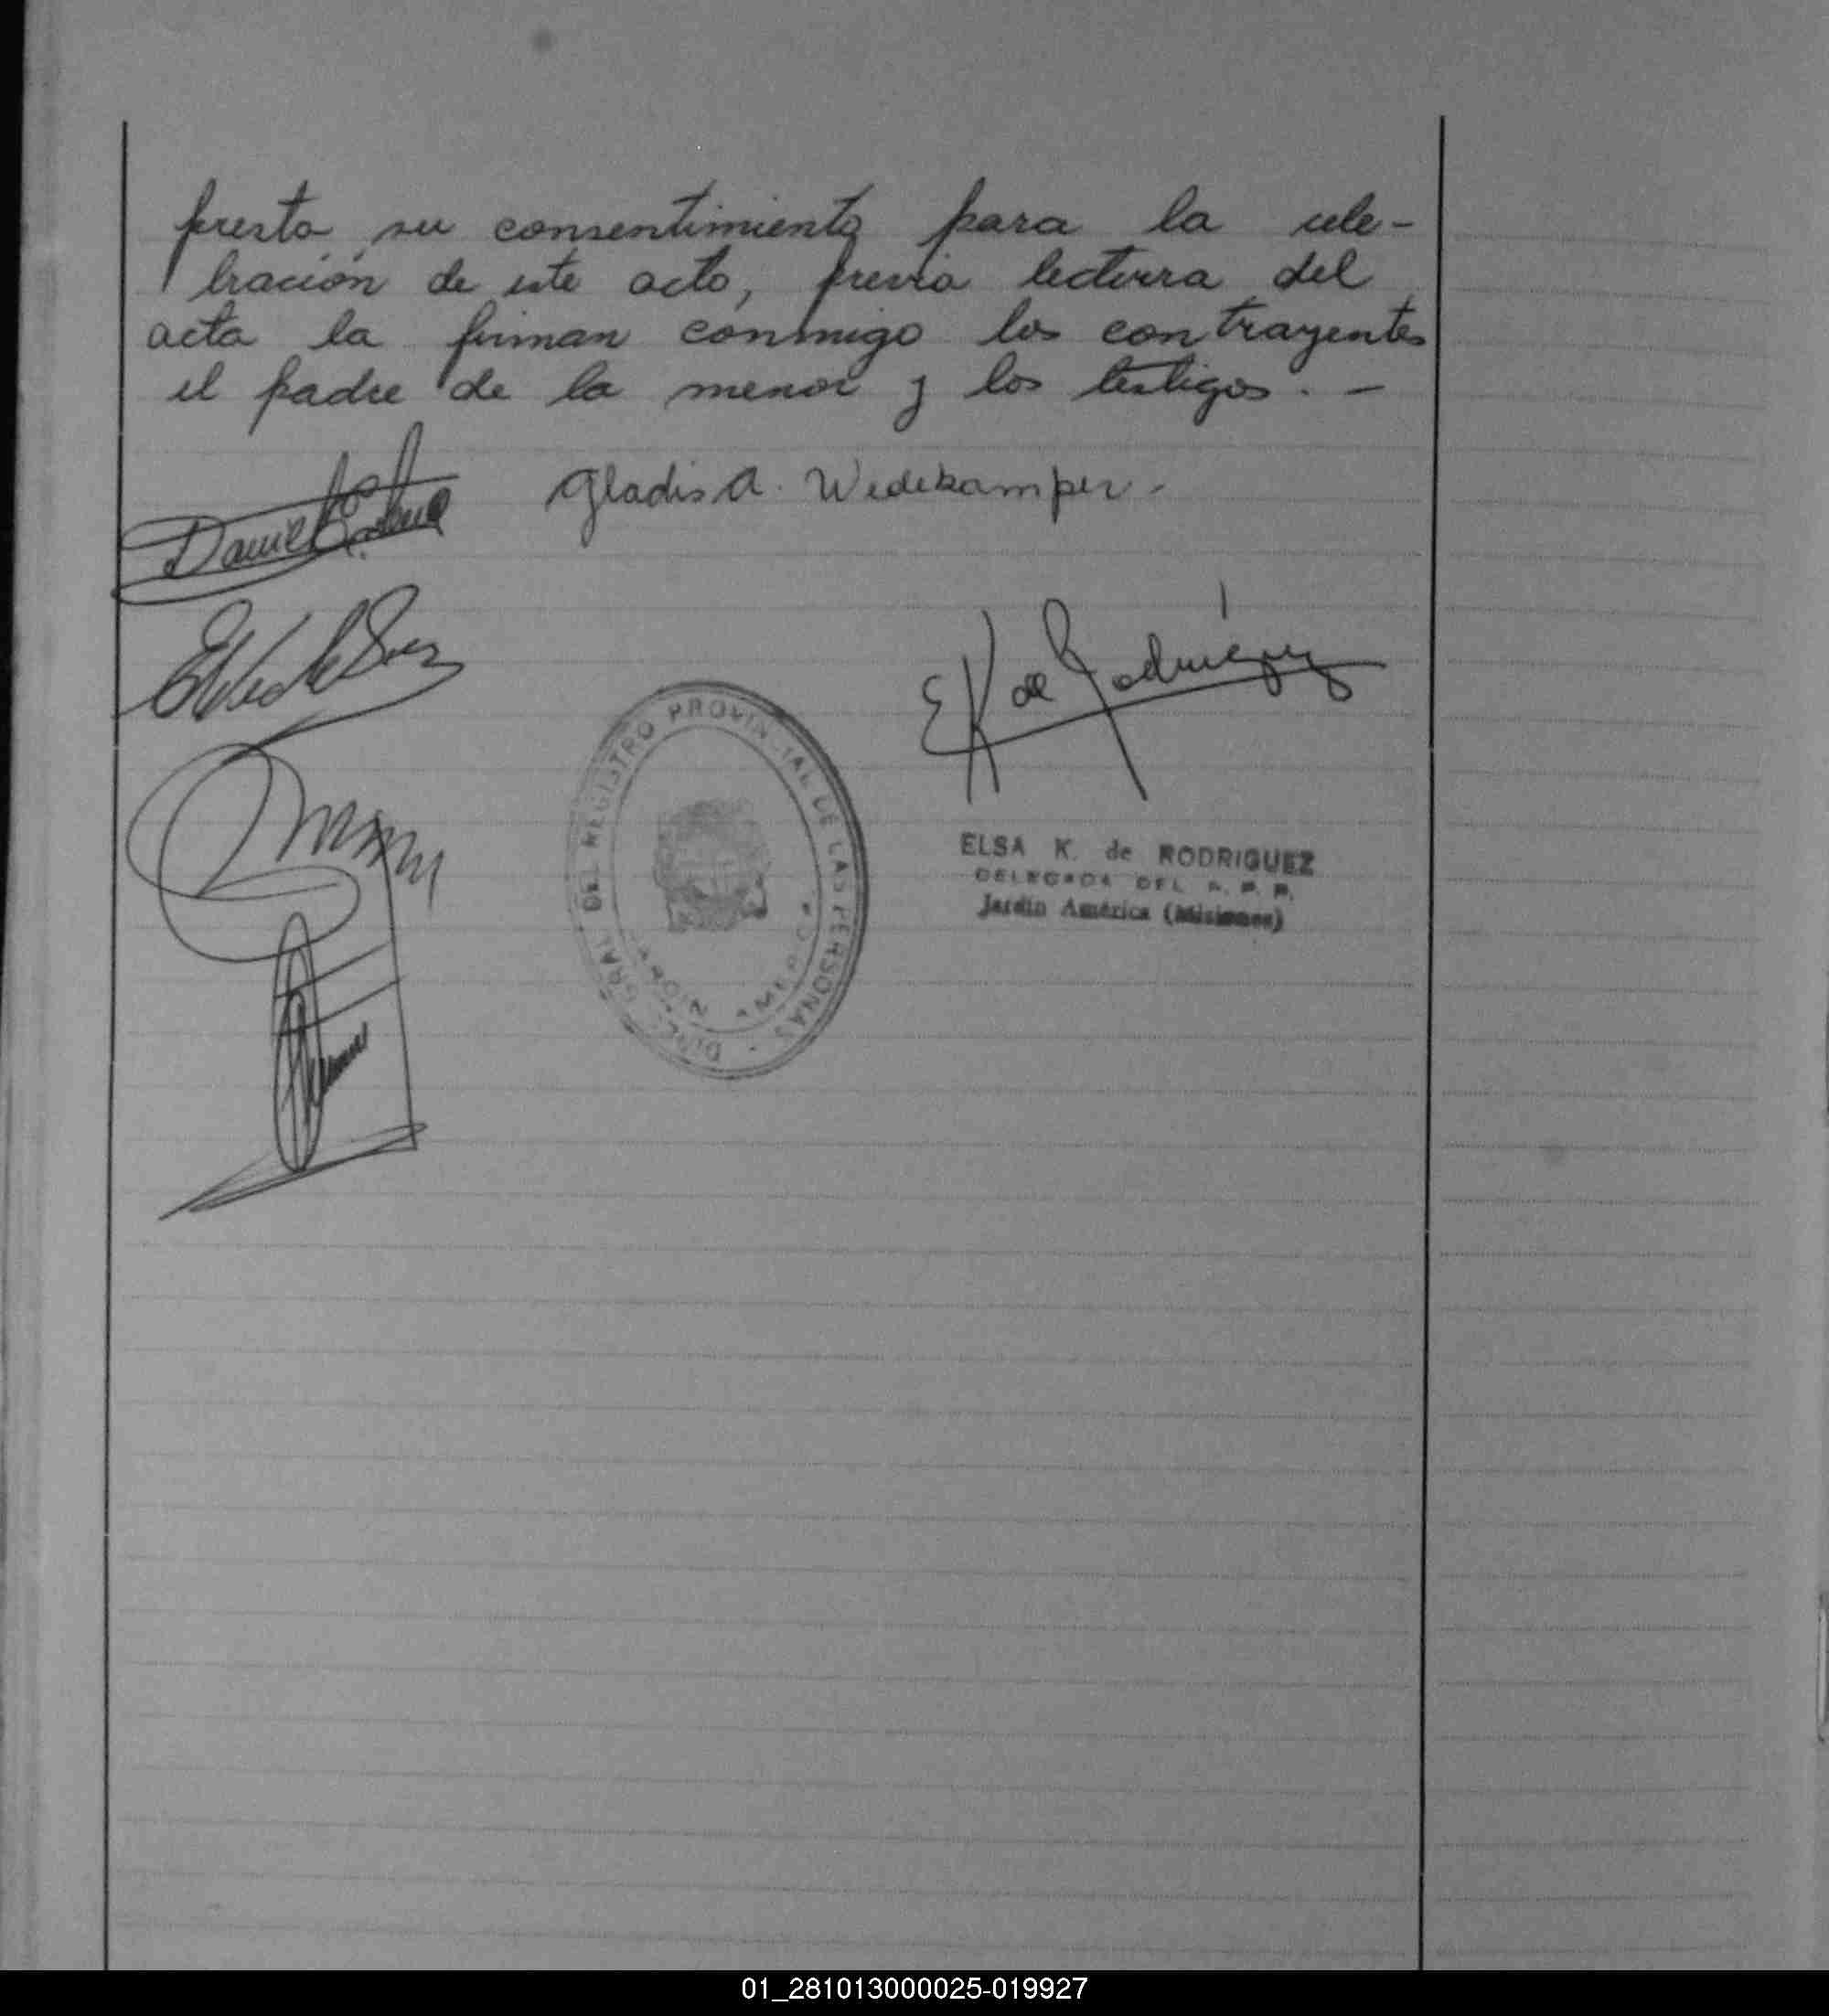 presta su consentimiento para la cele-
bración de este acto, previa lectura del
acta la firman conmigo los contrayentes
el padre de la menor y los testigos. -
Daniel
Gladis A. Wedekamper -
E K de Rodríguez
DIREC. GRAL. DEL REGISTRO PROVINCIAL DE LAS PERSONAS
JARDIN AMERICA
ELSA K. de RODRIGUEZ
DELEGADA DEL R. P. P.
Jardín América (Misiones)
01_281013000025-019927